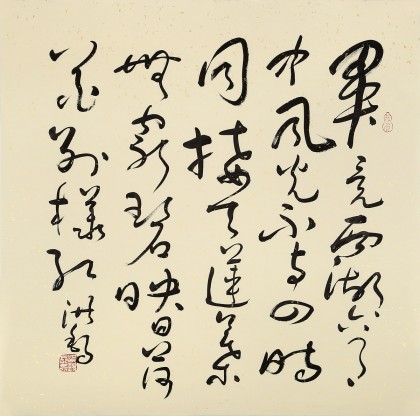 畢竟西湖六月
中風光不与四時
同接天蓮葉
無窮碧映日荷
花别樣紅 洪